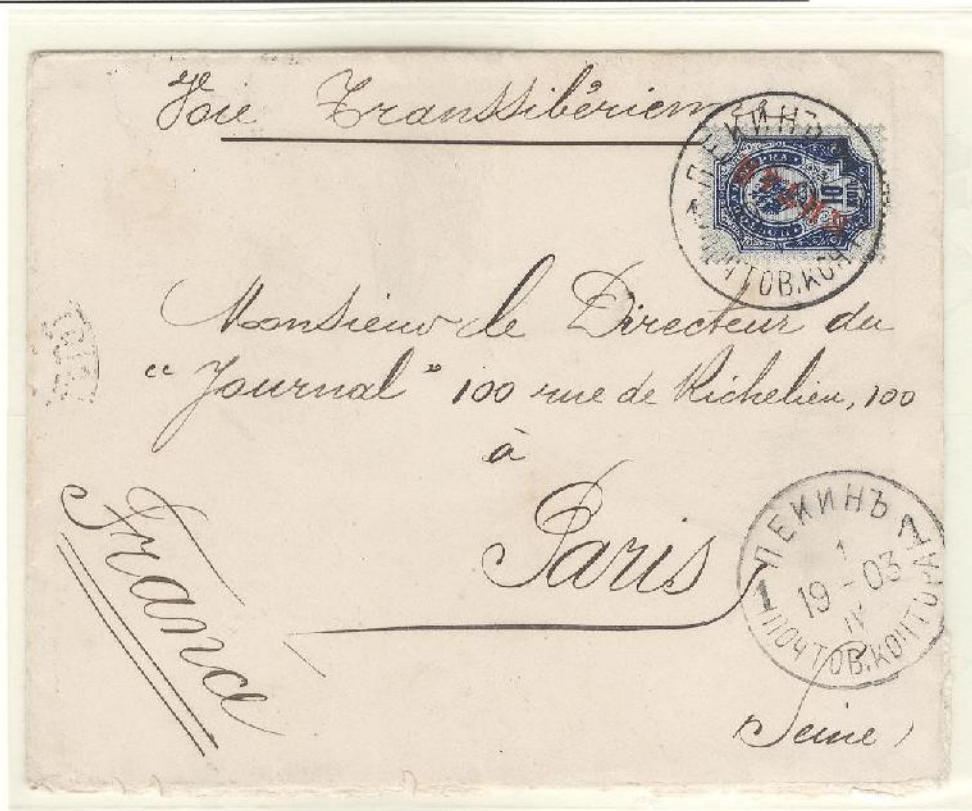 Voie Transsibérienne
ПЕКИНЪ
ПОЧТОВ. КОНТ
КИТАЙ
10
Monsieur le Directeur du
“Journal” 100 rue de Richelieu, 100
à
Paris
France
ПЕКИНЪ
1
19-03
IV
1
ПОЧТОВ. КОНТОРА
Seine)